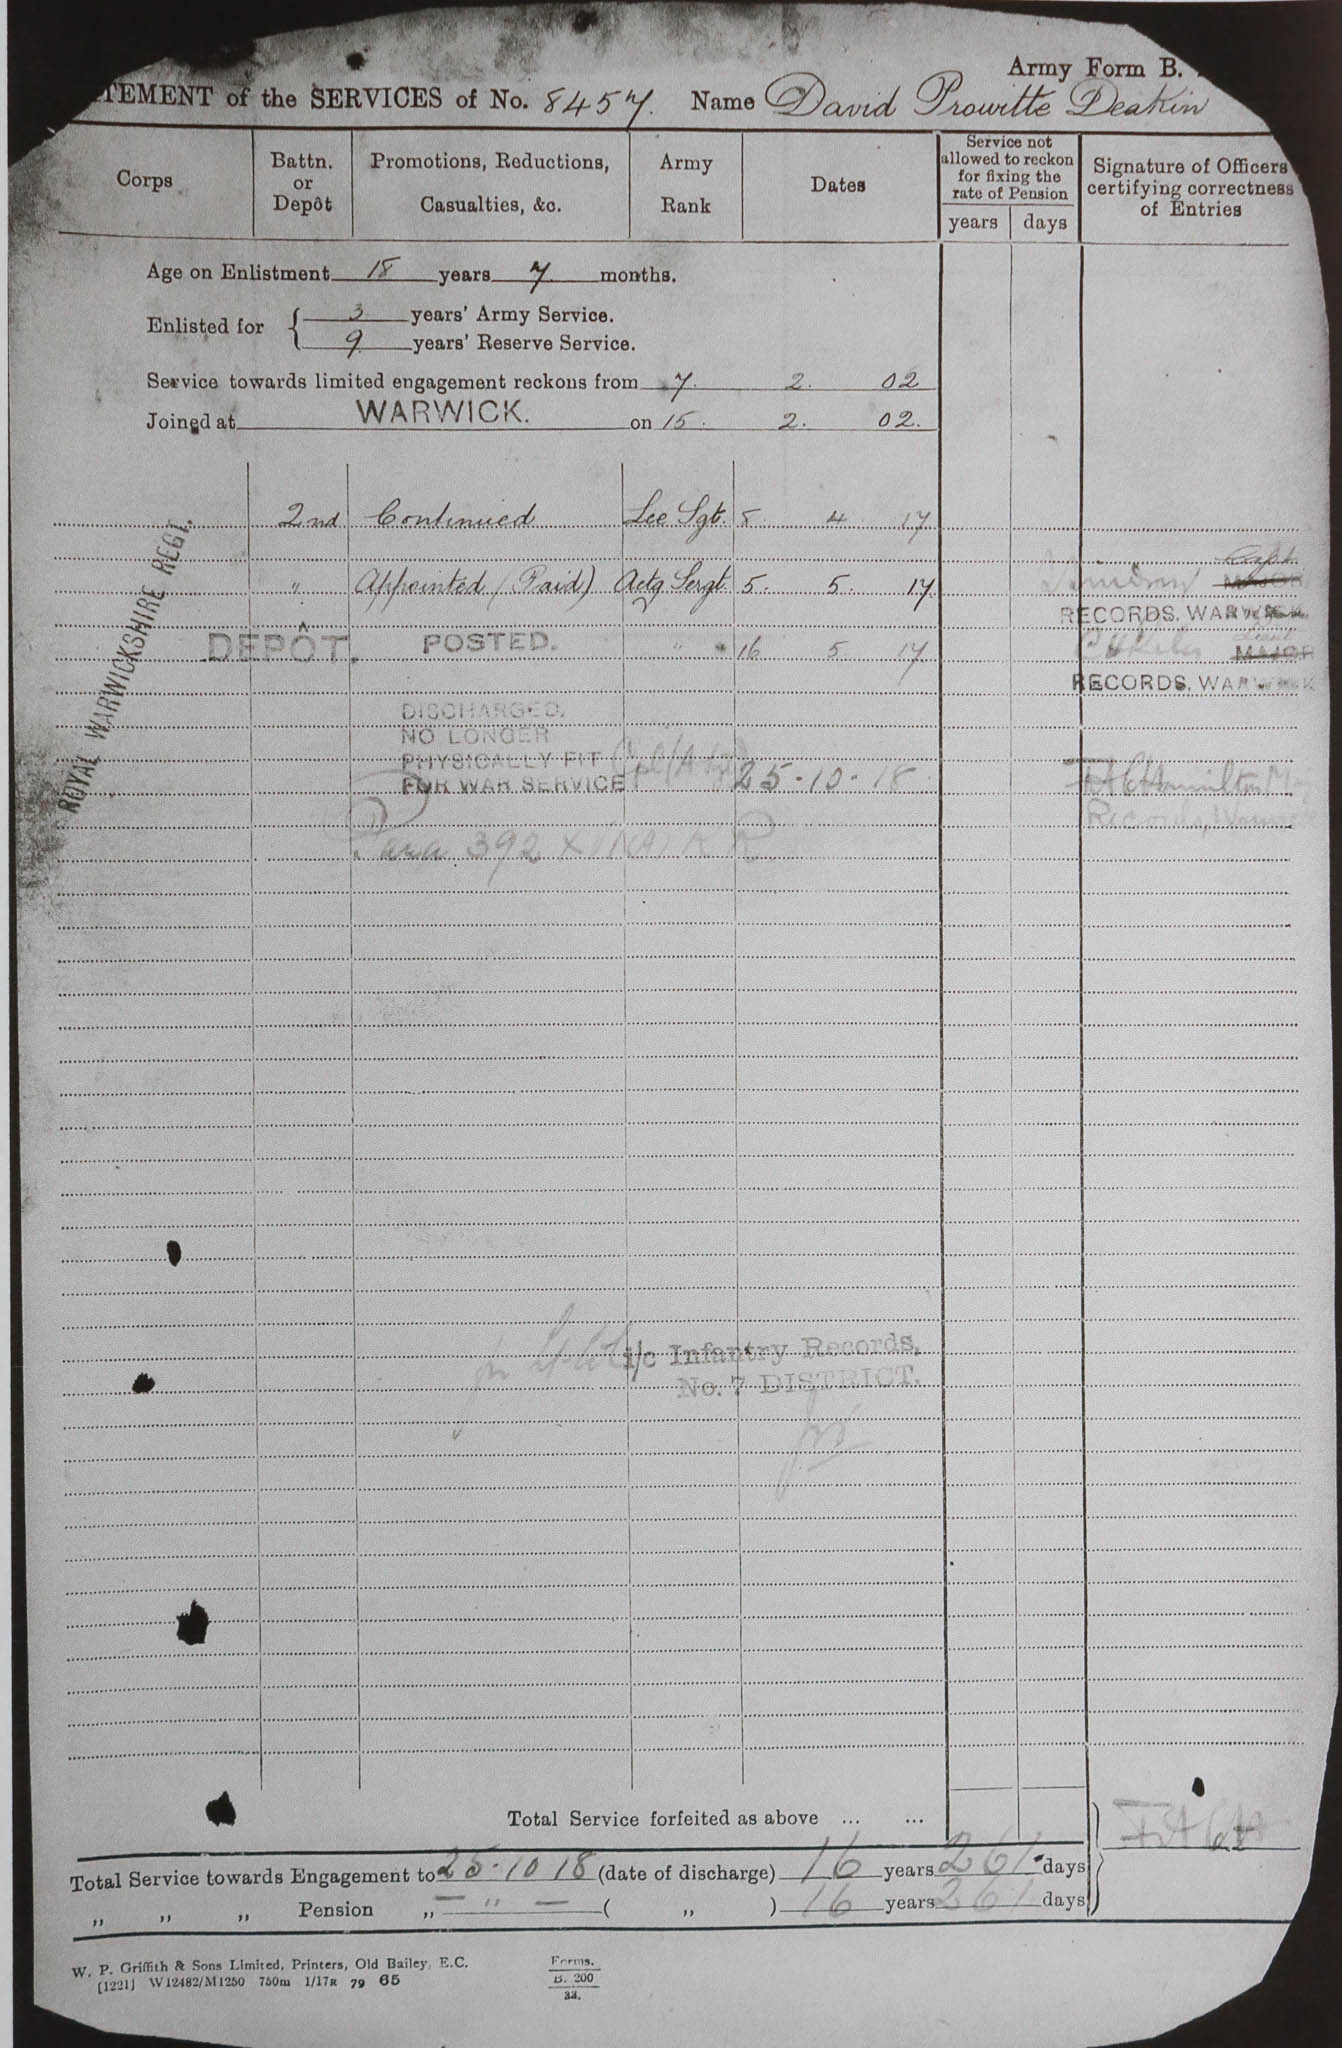 Army Form B.
TEMENT of the SERVICES of No. 8457. Name David Prowitte Deakin
Corps
Battn. or Depôt
Promotions, Reductions, Casualties, &c.
Army Rank
Dates
Service not allowed to reckon for fixing the rate of Pension
years days
Signature of Officers certifying correctness of Entries
Age on Enlistment 18 years 7 months.
Enlisted for { 3 years' Army Service.
9 years' Reserve Service.
Service towards limited engagement reckons from 7. 2. 02
Joined at WARWICK. on 15. 2. 02.
ROYAL WARWICKSHIRE REGT.
2nd Continued Lce Sgt. 8 4 17
" Appointed (Paid) Actg Sergt. 5. 5. 17. Capt. MAJOR
RECORDS, WARWICK
DEPÔT. POSTED. " 16 5 17 Lieut MAJOR
RECORDS, WARWICK
DISCHARGED.
NO LONGER
PHYSICALLY FIT
FOR WAR SERVICE 25.10.18 Hamilton
Records,
Para 392 K R
i/c Infantry Records,
No. 7 DISTRICT.
Total Service forfeited as above ... ...
Total Service towards Engagement to 25.10 18 (date of discharge) 16 years 261 days
„ „ „ Pension „ — " — ( „ ) 16 years 261 days
W. P. Griffith & Sons Limited, Printers, Old Bailey, E.C.
[1221] W12482/M1250 750m 1/17R 79 65
Forms.
B. 200
33.